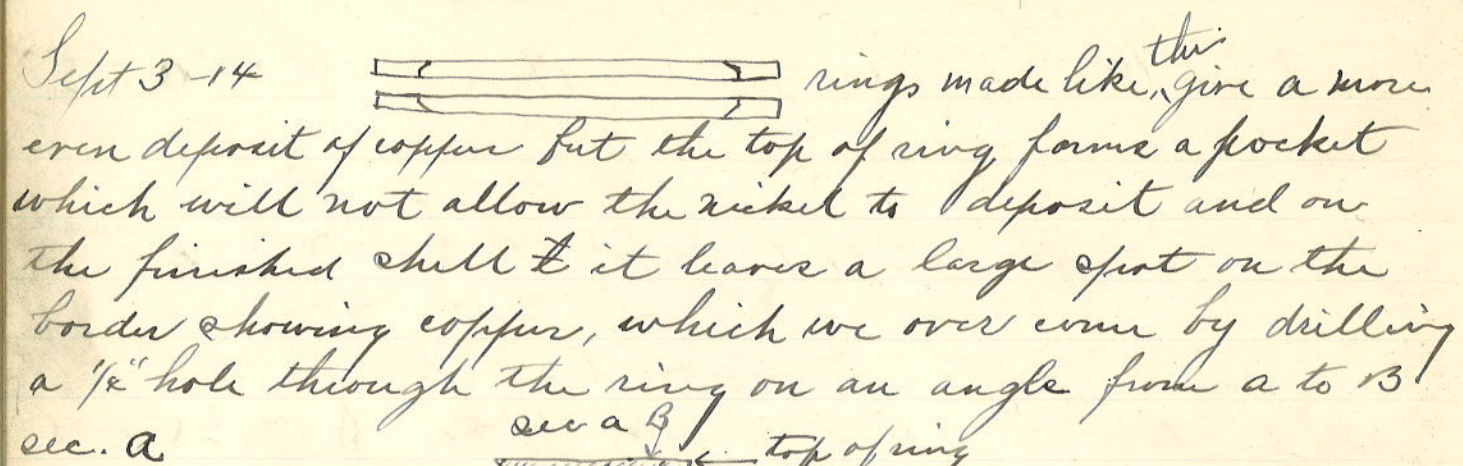 Sept 3 - 14 rings made like this give a more
even deposit of copper but the top of ring forms a pocket
which will not allow the nickel to deposit and on
the finished shell it leaves a large spot on the
border showing copper, which we over come by drilling
a 1/4" hole through the ring on an angle from a to B
sec. a sec a B top of ring